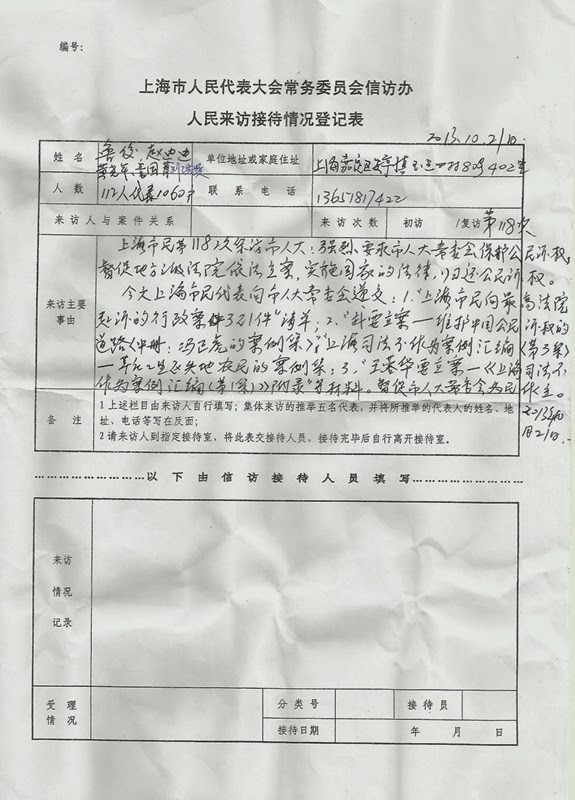 编号：
上海市人民代表大会常务委员会信访办
人民来访接待情况登记表
2013.10.21日.
姓名 鲁俊 赵迪迪 单位地址或家庭住址 上海嘉定区 402室
人数 112人代表1060户 联系电话 13651817422
来访人与案件关系 来访次数 初访 /复访 第118次
来访主要事由
上海市民第118次集访市人大：强烈要求市人大常委会保护公民诉权，
督促地方各级法院依法立案，实施国家的法律，归还公民诉权。
今天上海市民代表向市人大常委会递交：1.“上海市民向最高法院
起诉的行政案件321件”清单；2.“我要立案—维护中国公民诉权的
道路《中册：冯正虎的案例集》”上海司法不作为案例汇编（第3案）
地农民的案例集；3.“王春华要立案—《上海司法不
作为案例汇编（第1案）》附录”等材料。督促市人大常委会为民作主。
2013年10月21日.
备注
1 上述栏目由来访人自行填写；集体来访的推举五名代表，并将所推举的代表人的姓名、地
址、电话等写在反面；
2 请来访人到指定接待室，将此表交接待人员，接待完毕后自行离开接待室。
以下由信访接待人员填写
来访情况记录
受理情况 分类号 接待员
接待日期 年 月 日